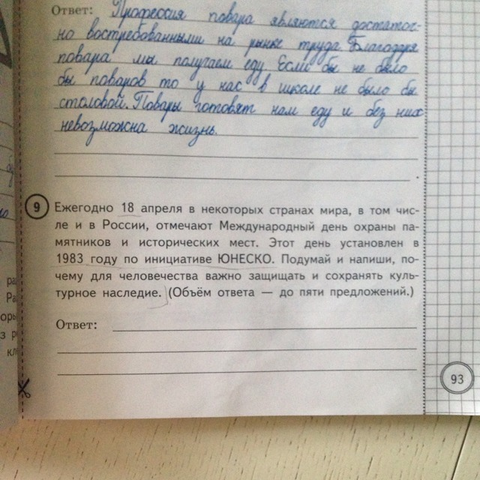 Ответ: Профессия повара являются достаточ-
но востребованными на рынке труда. Благодаря
повара мы получаем еду. Если бы не было
бы поваров то у нас в школе не было бы
столовой. Повары готовят нам еду и без них
невозможна жизнь.
9 Ежегодно 18 апреля в некоторых странах мира, в том чис-
ле и в России, отмечают Международный день охраны па-
мятников и исторических мест. Этот день установлен в
1983 году по инициативе ЮНЕСКО. Подумай и напиши, по-
чему для человечества важно защищать и сохранять куль-
турное наследие. (Объём ответа — до пяти предложений.)
Ответ:
93